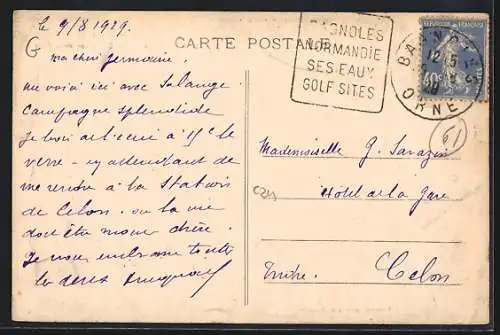 le 9/8 1929.
CARTE POSTALE
BAGNOLES
NORMANDIE
SES EAUX
GOLF SITES
BAGNOLES
12 15
ORNE
40c
61
G
ma chère Germaine,
me voici ici avec Solange
Campagne splendide
Je bois
verre en attendant de
me rendre à la Station
de Celon. où la vie
doit être moins chère.
Je vous embrasse toutes
les deux
Mademoiselle G. Sarazin
Hotel de la Gare
Celon
Indre.